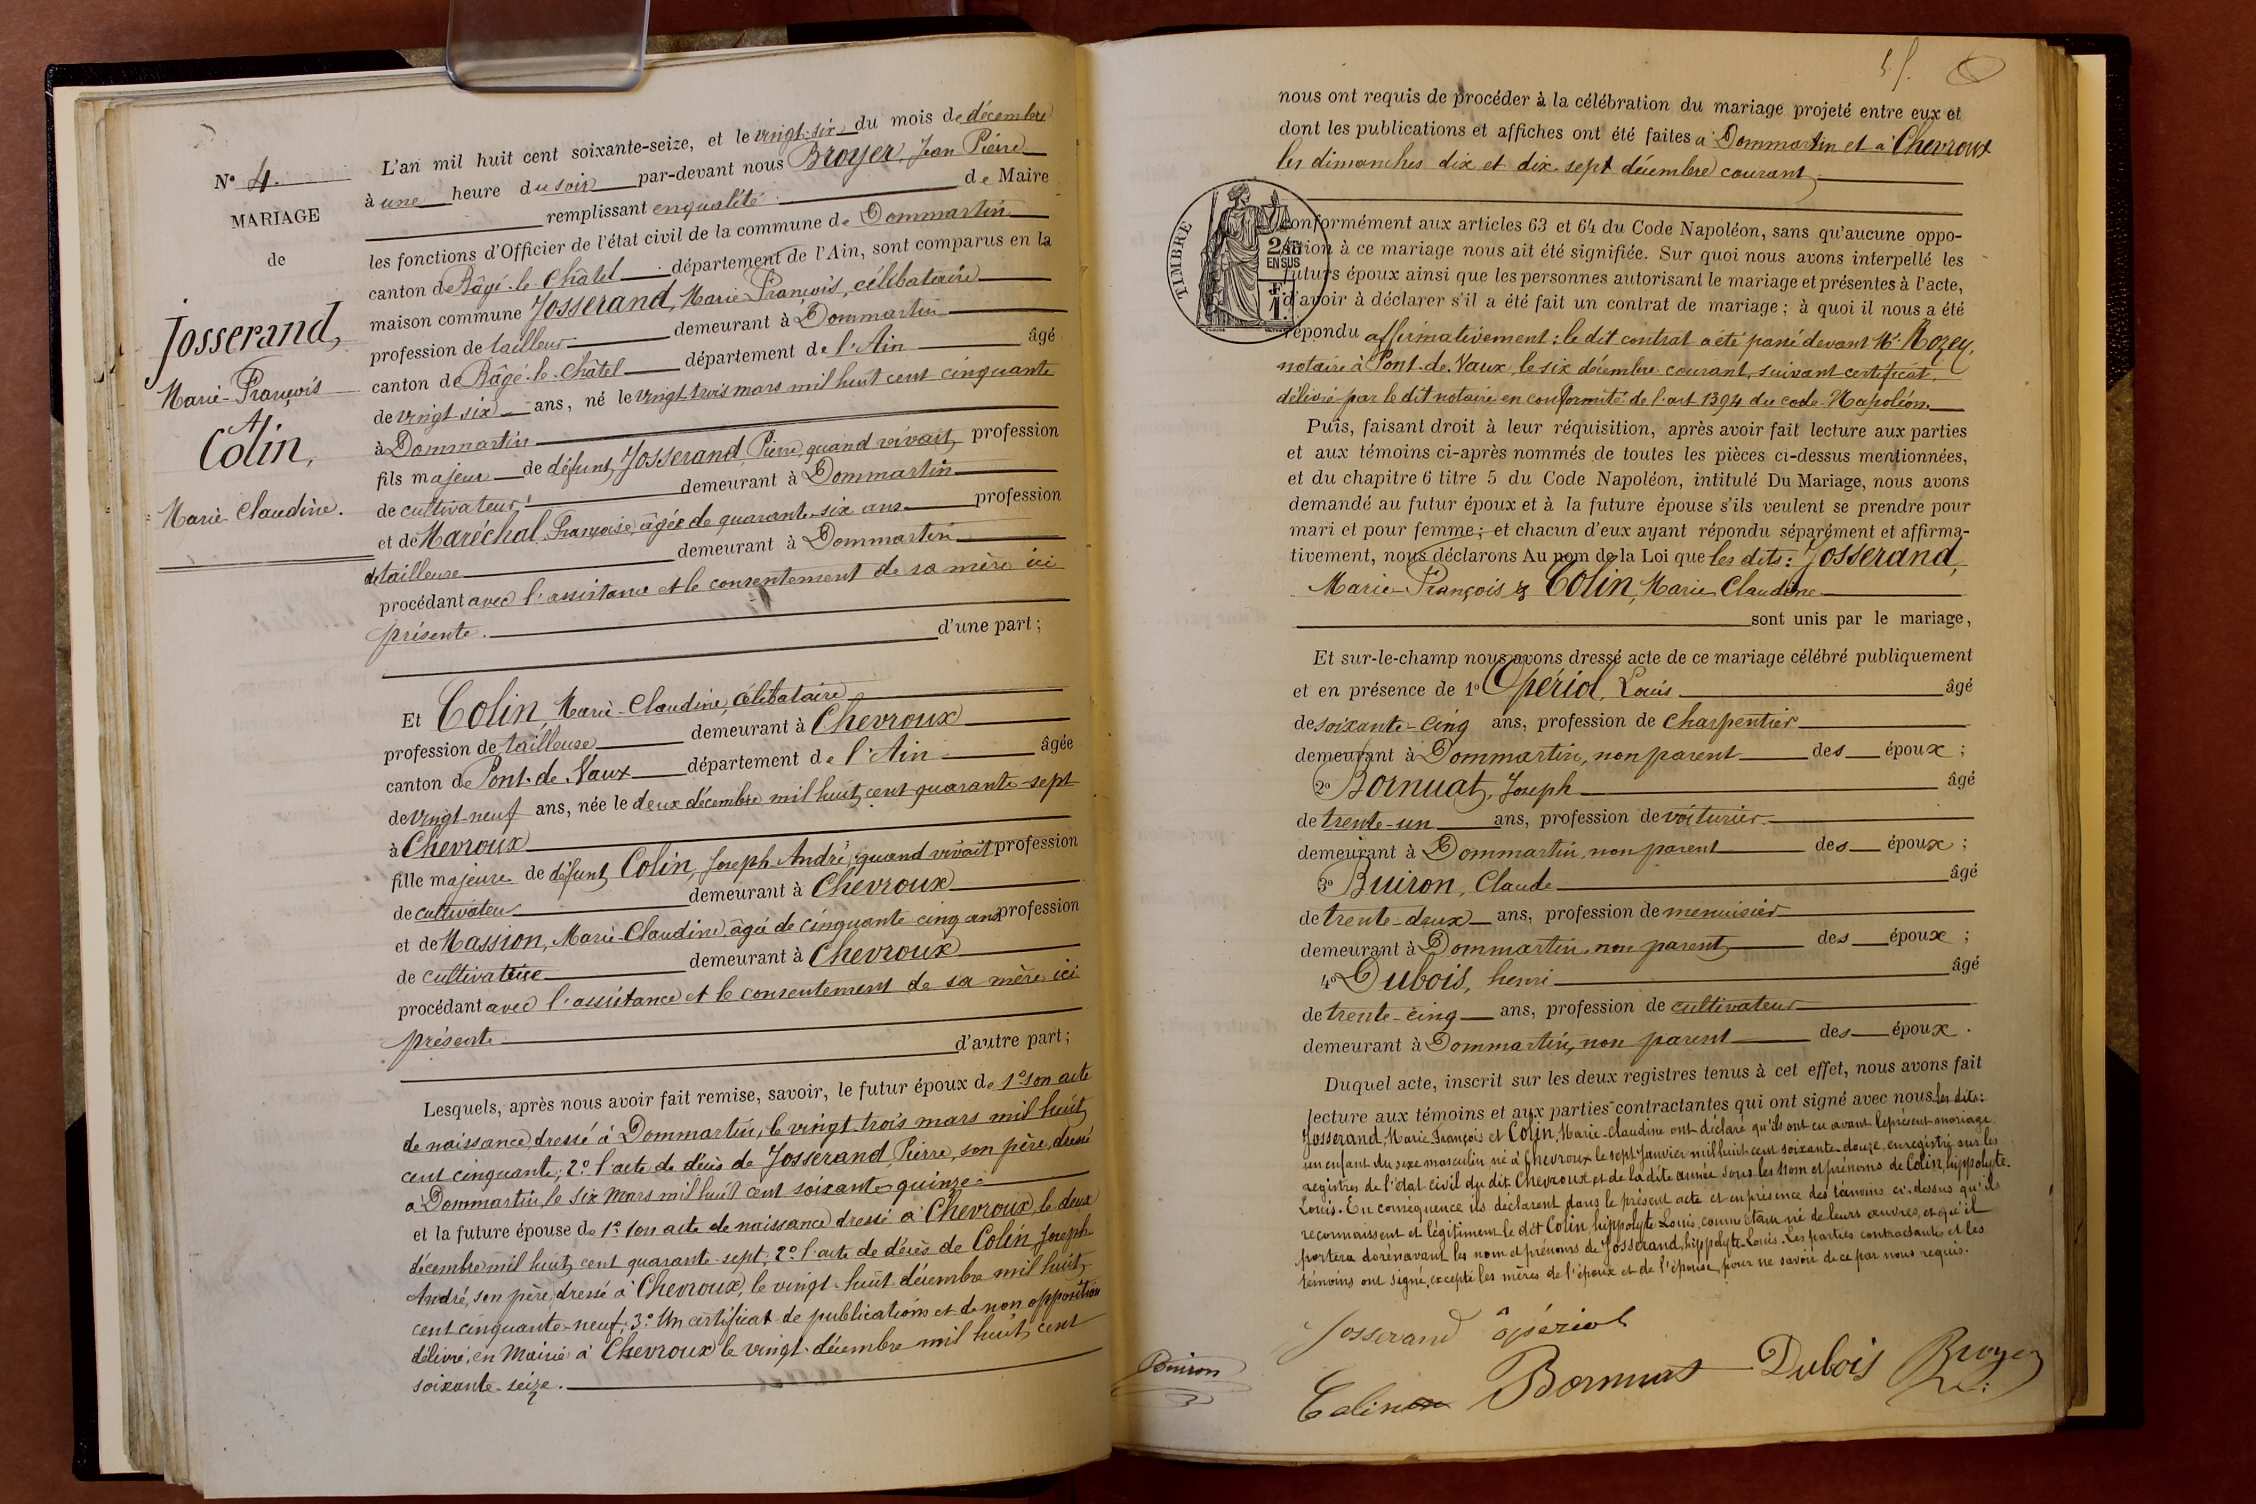 N° 4.
MARIAGE
de
Josserand,
Marie-François
A
Colin,
Marie Claudine.
L'an mil huit cent soixante-seize, et le vingt-six du mois de décembre
à une heure du soir par-devant nous Broyer, Jean Pierre
remplissant en qualité de Maire
les fonctions d'Officier de l'état civil de la commune de Dommartin
canton de Bâgé-le-Châtel département de l'Ain, sont comparus en la
maison commune Josserand, Marie-François, célibataire
profession de tailleur demeurant à Dommartin
canton de Bâgé-le-Châtel département de l'Ain âgé
de vingt-six ans, né le vingt trois mars mil huit cent cinquante
à Dommartin
fils majeur de défunt Josserand, Pierre, quand vivait, profession
de cultivateur demeurant à Dommartin
et de Maréchal, Françoise, âgée de quarante-six ans profession
de tailleuse demeurant à Dommartin
procédant avec l'assistance et le consentement de sa mère ici
présente. d'une part;
Et Colin, Marie-Claudine, célibataire
profession de tailleuse demeurant à Chevroux
canton de Pont-de-Vaux département de l'Ain âgée
de vingt-neuf ans, née le deux décembre mil huit cent quarante-sept
à Chevroux
fille majeure de défunt Colin, Joseph-André, quand vivait profession
de cultivateur demeurant à Chevroux
et de Massion, Marie-Claudine, âgée de cinquante cinq ans profession
de cultivatrice demeurant à Chevroux
procédant avec l'assistance et le consentement de sa mère ici
présente d'autre part;
Lesquels, après nous avoir fait remise, savoir, le futur époux de 1° son acte
de naissance, dressé à Dommartin, le vingt-trois mars mil huit
cent cinquante; 2° l'acte de décès de Josserand, Pierre, son père, dressé
à Dommartin, le six mars mil huit cent soixante-quinze;
et la future épouse de 1° son acte de naissance dressé à Chevroux, le deux
décembre mil huit cent quarante-sept; 2° l'acte de décès de Colin, Joseph
André, son père, dressé à Chevroux, le vingt-huit décembre mil huit
cent cinquante-neuf; 3° Un certificat de publications et de non opposition
délivré, en Mairie à Chevroux le vingt-décembre mil huit cent
soixante-seize.
nous ont requis de procéder à la célébration du mariage projeté entre eux et
dont les publications et affiches ont été faites à Dommartin et à Chevroux
les dimanches dix et dix-sept décembre courant,
TIMBRE
2/10
EN SUS
1F.
conformément aux articles 63 et 64 du Code Napoléon, sans qu'aucune oppo-
sition à ce mariage nous ait été signifiée. Sur quoi nous avons interpellé les
futurs époux ainsi que les personnes autorisant le mariage et présentes à l'acte,
d'avoir à déclarer s'il a été fait un contrat de mariage; à quoi il nous a été
répondu affirmativement; le dit contrat a été passé devant Me
notaire à Pont-de-Vaux, le six décembre courant, suivant certificat
délivré par le dit notaire en conformité de l'art 1394 du code-Napoléon.
Puis, faisant droit à leur réquisition, après avoir fait lecture aux parties
et aux témoins ci-après nommés de toutes les pièces ci-dessus mentionnées,
et du chapitre 6 titre 5 du Code Napoléon, intitulé Du Mariage, nous avons
demandé au futur époux et à la future épouse s'ils veulent se prendre pour
mari et pour femme; et chacun d'eux ayant répondu séparément et affirma-
tivement, nous déclarons Au nom de la Loi que les dits: Josserand,
Marie-François & Colin, Marie Claudine
sont unis par le mariage,
Et sur-le-champ nous avons dressé acte de ce mariage célébré publiquement
et en présence de 1° Opériol, Louis âgé
de soixante-cinq ans, profession de charpentier
demeurant à Dommartin, non parent des époux;
2° Bornuat, Joseph âgé
de trente-un ans, profession de voiturier
demeurant à Dommartin, non parent des époux;
3° Buiron, Claude âgé
de trente-deux ans, profession de menuisier
demeurant à Dommartin, non parent des époux;
4° Dubois, henri âgé
de trente-cinq ans, profession de cultivateur
demeurant à Dommartin, non parent des époux.
Duquel acte, inscrit sur les deux registres tenus à cet effet, nous avons fait
lecture aux témoins et aux parties contractantes qui ont signé avec nous les dits:
Josserand, Marie François et Colin, Marie-Claudine ont déclaré qu'ils ont eu avant le présent mariage
un enfant du sexe masculin né à Chevroux le sept Janvier mil huit cent soixante-douze, enregistré sur les
registres de l'état civil du dit Chevroux et de la dite année sous les nom et prénoms de Colin, hippolyte-
Louis. En conséquence ils déclarent dans le présent acte et en présence des témoins ci-dessus qu'ils
reconnaissent et légitiment le dit Colin hippolyte Louis, comme étant né de leurs œuvres, et qu'il
portera dorénavant les nom et prénoms de Josserand, hippolyte-Louis. Les parties contractantes et les
témoins ont signé, excepté les mères de l'époux et de l'épouse, pour ne savoir de ce par nous requis.
Josserand opériol
Buiron
Colin Bornuat Dubois Broyer